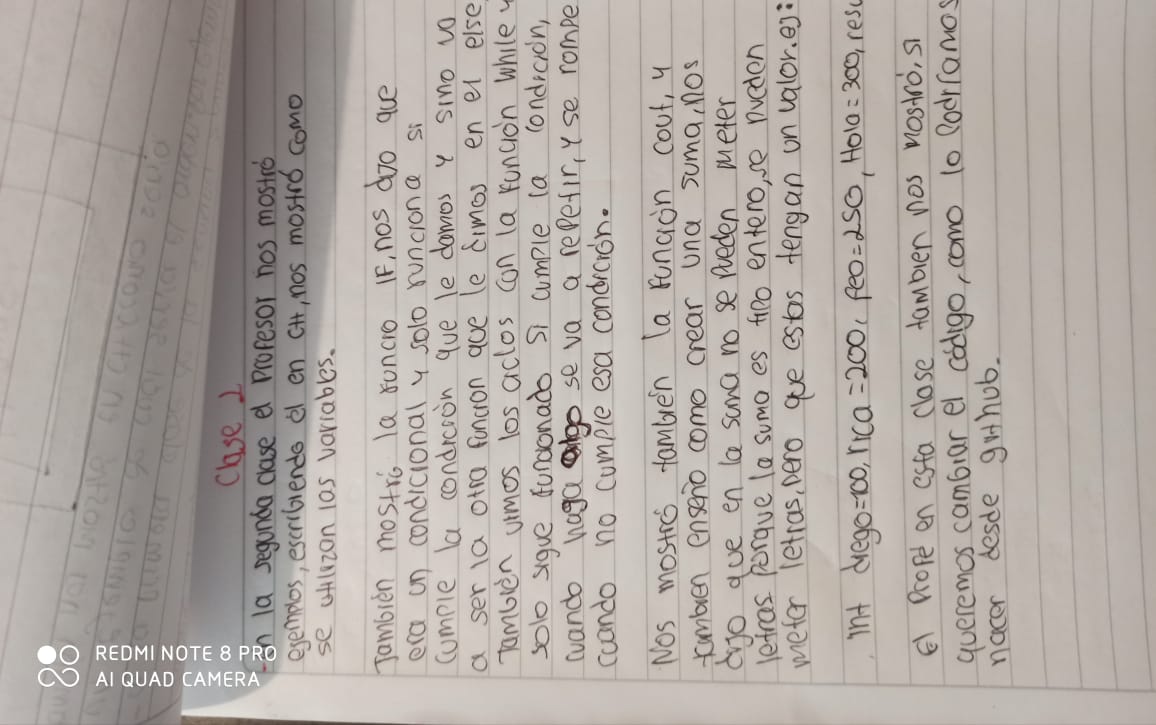 Clase 2
En la segunda clase el profesor nos mostró
egemplos, escribiendo el en C++, nos mostró como
se utilizan las variables.
También mostró la funcio IF, nos dijo que
era un condicional y solo funciona si
cumple la condición que le damos y sino va
a ser la otra funcion que le dimos en el else
También vimos los ciclos con la función while y
solo sigue funcionado si cumple la condición,
cuando haga algo se va a repetir, y se rompe
cuando no cumple esa condición.
Nos mostró también la función cout, y
tambien enseño como crear una suma, nos
dijo que en la suma no se pueden meter
letras porque la suma es tipo entero, se pueden
meter letras, pero que estas tengan un valor. ej:
int diego=100, rica=200, feo=250, Hola=300, resu
El profe en esta clase tambien nos mostró, si
queremos cambiar el código, como lo podríamos
hacer desde github.
REDMI NOTE 8 PRO
AI QUAD CAMERA